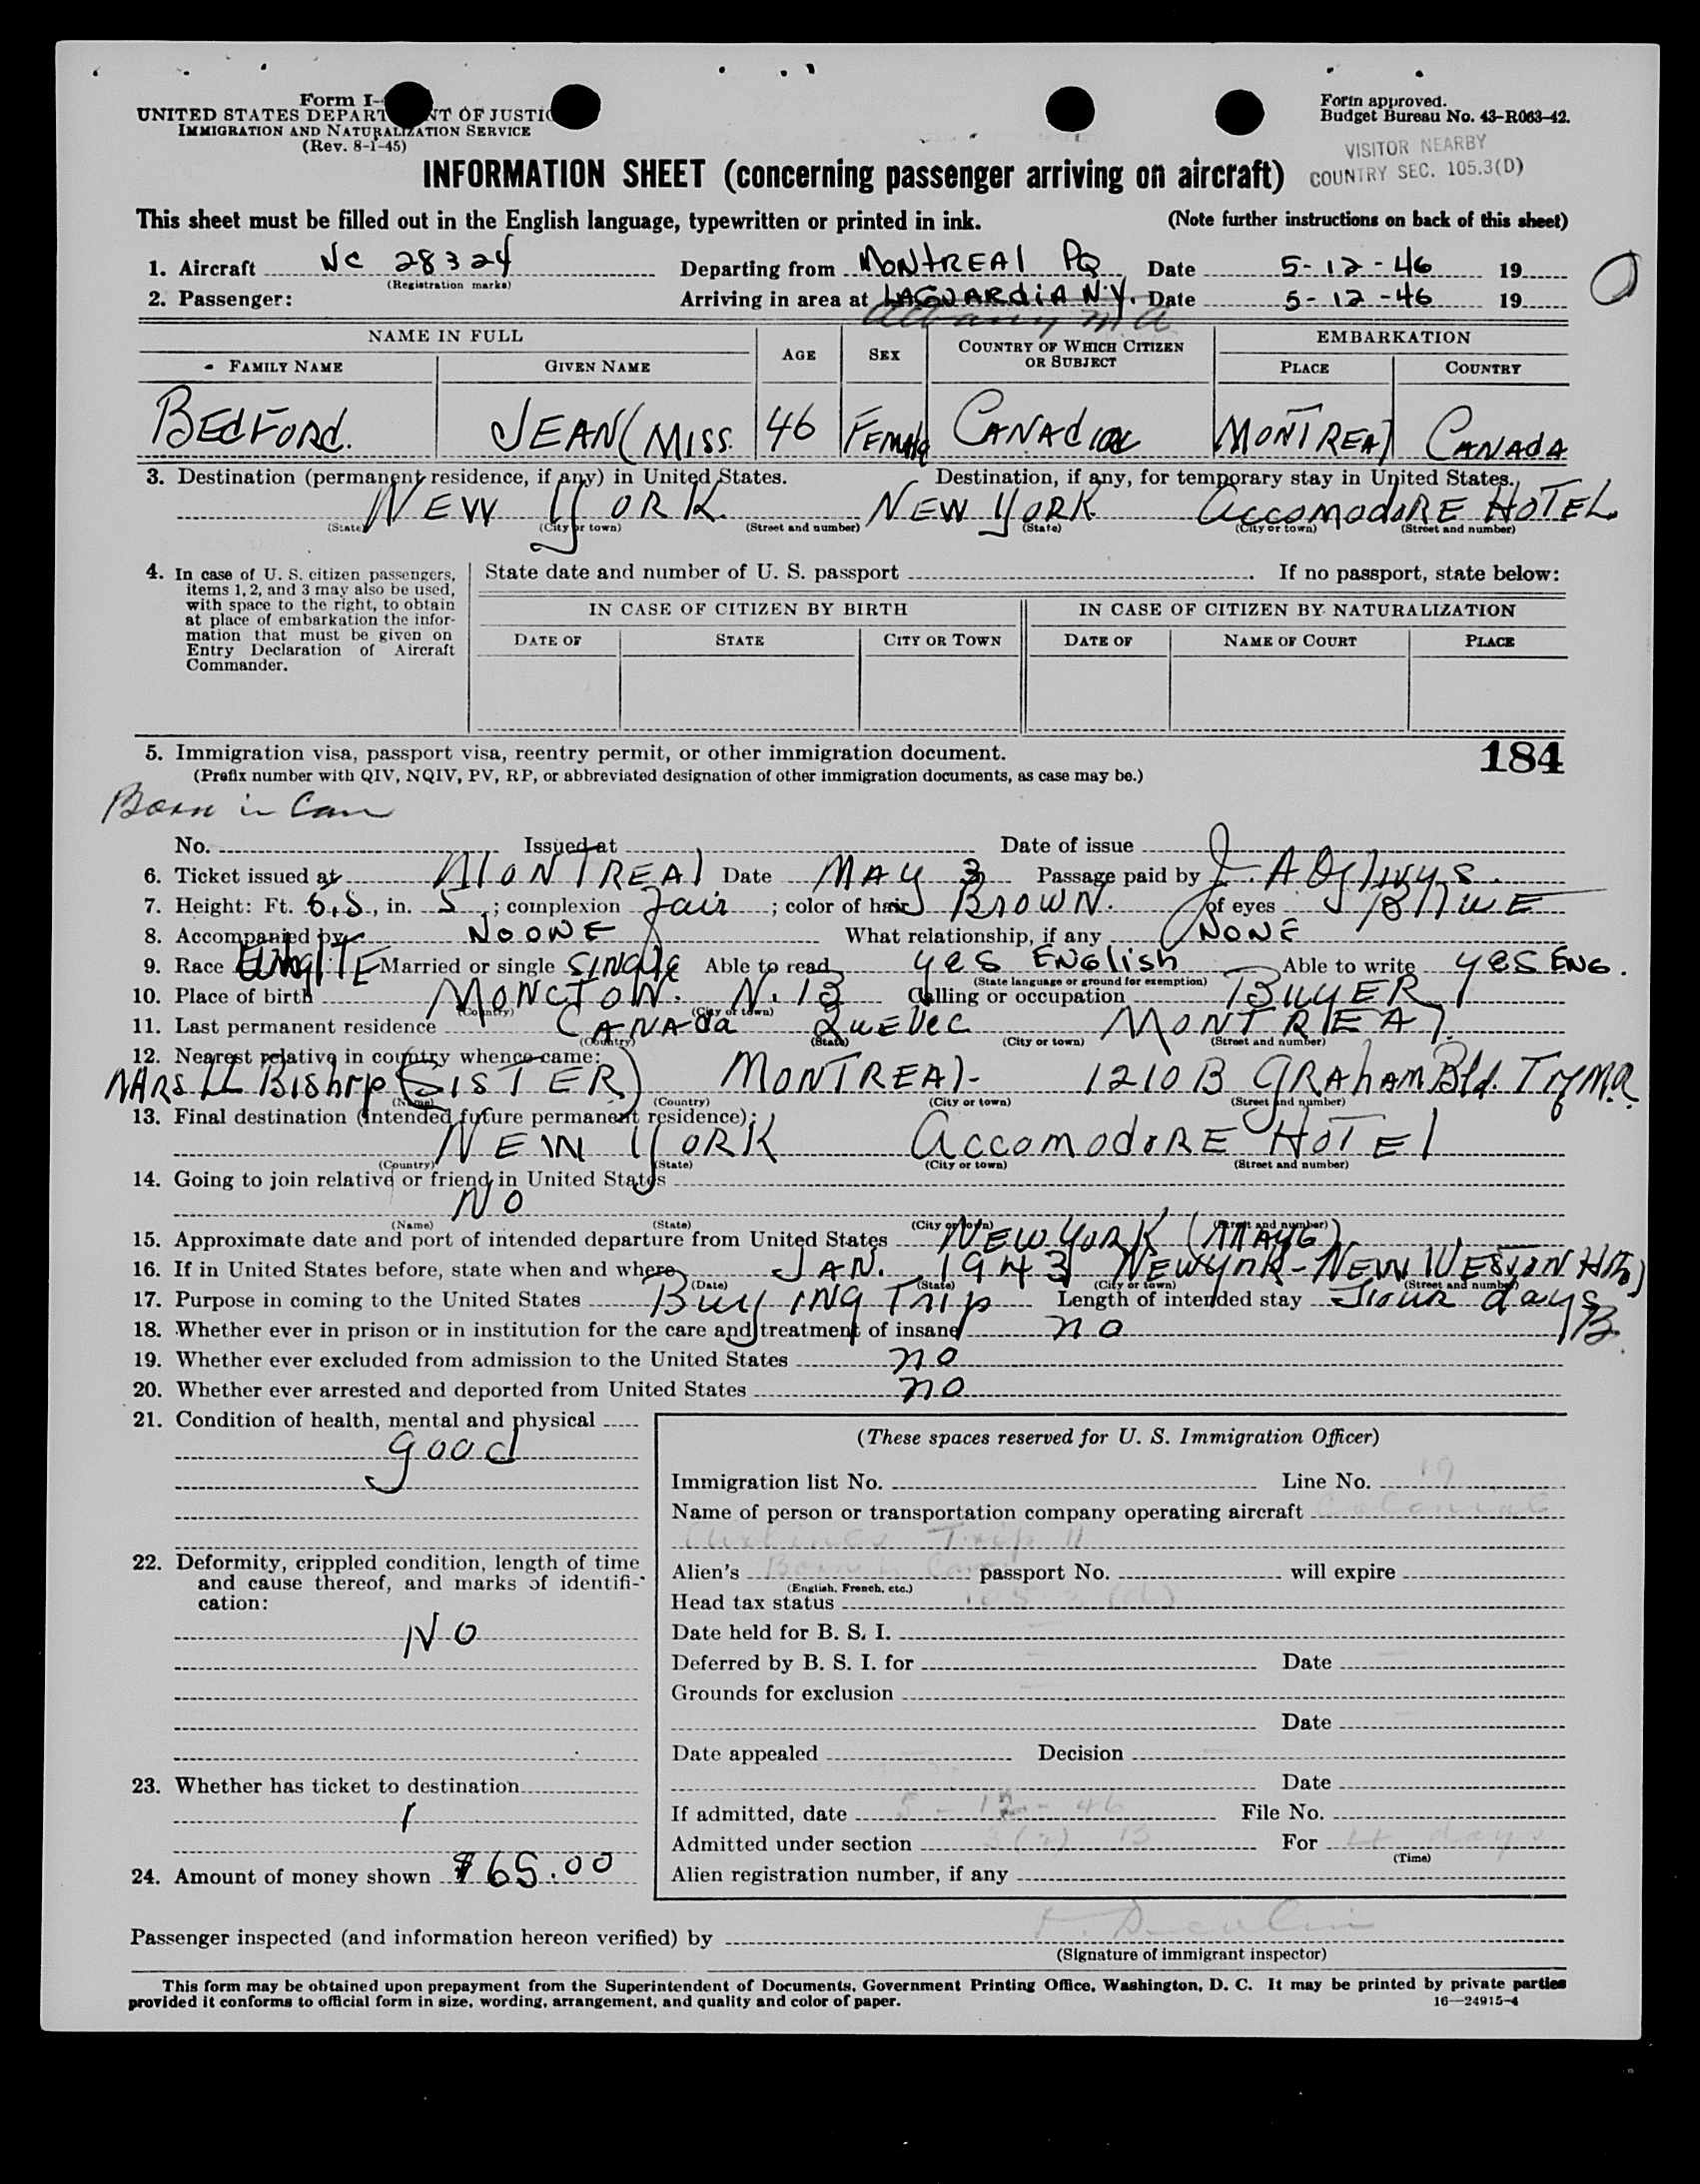 Form I-
UNITED STATES DEPART NT OF JUSTIC
IMMIGRATION AND NATURALIZATION SERVICE
(Rev. 8-1-45)
Form approved.
Budget Bureau No. 43-R063-42.
VISITOR NEARBY
COUNTRY SEC. 105.3(D)
INFORMATION SHEET (concerning passenger arriving on aircraft)
This sheet must be filled out in the English language, typewritten or printed in ink. (Note further instructions on back of this sheet)
1. Aircraft NC 28324 Departing from MONTREAL PQ Date 5-12-46 19
(Registration marks)
2. Passenger: Arriving in area at LAGUARDIA N.Y. Date 5-12-46 19
Albany
NAME IN FULL AGE SEX COUNTRY OF WHICH CITIZEN OR SUBJECT EMBARKATION
FAMILY NAME GIVEN NAME PLACE COUNTRY
BEDFORD. JEAN (MISS. 46 FEMALE CANADIAN MONTREAL CANADA
3. Destination (permanent residence, if any) in United States. Destination, if any, for temporary stay in United States.
NEW YORK. NEW YORK ACCOMODORE HOTEL
(State) (City or town) (Street and number) (State) (City or town) (Street and number)
4. In case of U. S. citizen passengers, items 1, 2, and 3 may also be used, with space to the right, to obtain at place of embarkation the information that must be given on Entry Declaration of Aircraft Commander.
State date and number of U. S. passport If no passport, state below:
IN CASE OF CITIZEN BY BIRTH IN CASE OF CITIZEN BY NATURALIZATION
DATE OF STATE CITY OR TOWN DATE OF NAME OF COURT PLACE
5. Immigration visa, passport visa, reentry permit, or other immigration document. 184
(Prefix number with QIV, NQIV, PV, RP, or abbreviated designation of other immigration documents, as case may be.)
Born in Can
No. Issued at Date of issue
6. Ticket issued at MONTREAL Date MAY 3 Passage paid by J. A Ogilvys.
7. Height: Ft. 5, in. 5; complexion fair; color of hair BROWN. of eyes BLUE
8. Accompanied by NO ONE What relationship, if any NONE
9. Race Married or single SINGLE Able to read yes ENGlish Able to write yes ENG.
(State language or ground for exemption)
10. Place of birth MONCTON. N.B Calling or occupation BUYER
(Country) (City or town)
11. Last permanent residence CANADA QUEBEC MONTREAL
(Country) (State) (City or town) (Street and number)
12. Nearest relative in country whence came:
MRS LL Bishop (SISTER) MONTREAL- 1210 B GRAHAM Bld. T of M.R.
(Name) (Country) (City or town) (Street and number)
13. Final destination (intended future permanent residence):
NEW YORK ACCOMODORE HOTEL
(Country) (State) (City or town) (Street and number)
14. Going to join relative or friend in United States
NO
(Name) (State) (City or town) (Street and number)
15. Approximate date and port of intended departure from United States NEW YORK (MAY 16)
16. If in United States before, state when and where JAN. 1943 NEWYORK-NEW WESTON Hotel
(Date) (State) (City or town) (Street and number)
17. Purpose in coming to the United States BUYING Trip Length of intended stay Four days
18. Whether ever in prison or in institution for the care and treatment of insane no
19. Whether ever excluded from admission to the United States no
20. Whether ever arrested and deported from United States no
21. Condition of health, mental and physical
good
22. Deformity, crippled condition, length of time and cause thereof, and marks of identification:
NO
23. Whether has ticket to destination
24. Amount of money shown $65.00
(These spaces reserved for U. S. Immigration Officer)
Immigration list No. Line No. 19
Name of person or transportation company operating aircraft Colonial
Airlines Trip 11
Alien's Born in Can passport No. will expire
(English, French, etc.)
Head tax status 105 3 (d)
Date held for B. S. I.
Deferred by B. S. I. for Date
Grounds for exclusion
Date
Date appealed Decision
Date
If admitted, date 5-12-46 File No.
Admitted under section 3(2) B For 4 days
(Time)
Alien registration number, if any
Passenger inspected (and information hereon verified) by
(Signature of immigrant inspector)
This form may be obtained upon prepayment from the Superintendent of Documents, Government Printing Office, Washington, D. C. It may be printed by private parties
provided it conforms to official form in size, wording, arrangement, and quality and color of paper. 16—24915-4